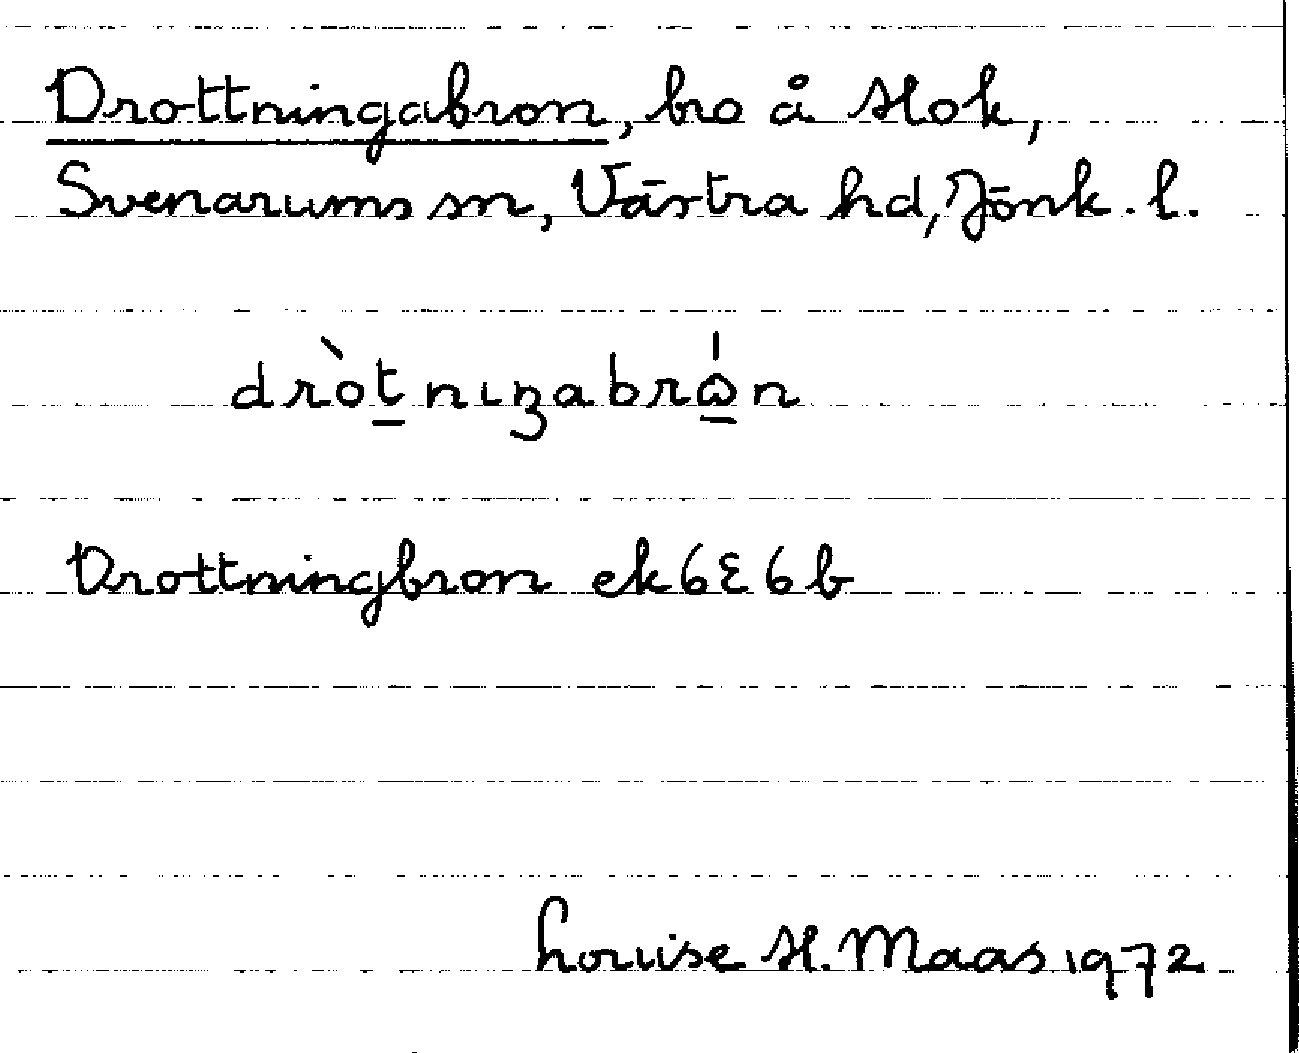 Drottningabron, bro å Hok,
Svenarums sn, Västra hd, Jönk. l.
dròt̲nıŋabrώ̲n
Drottningbron ek 6E6b
Louise H. Maas 1972